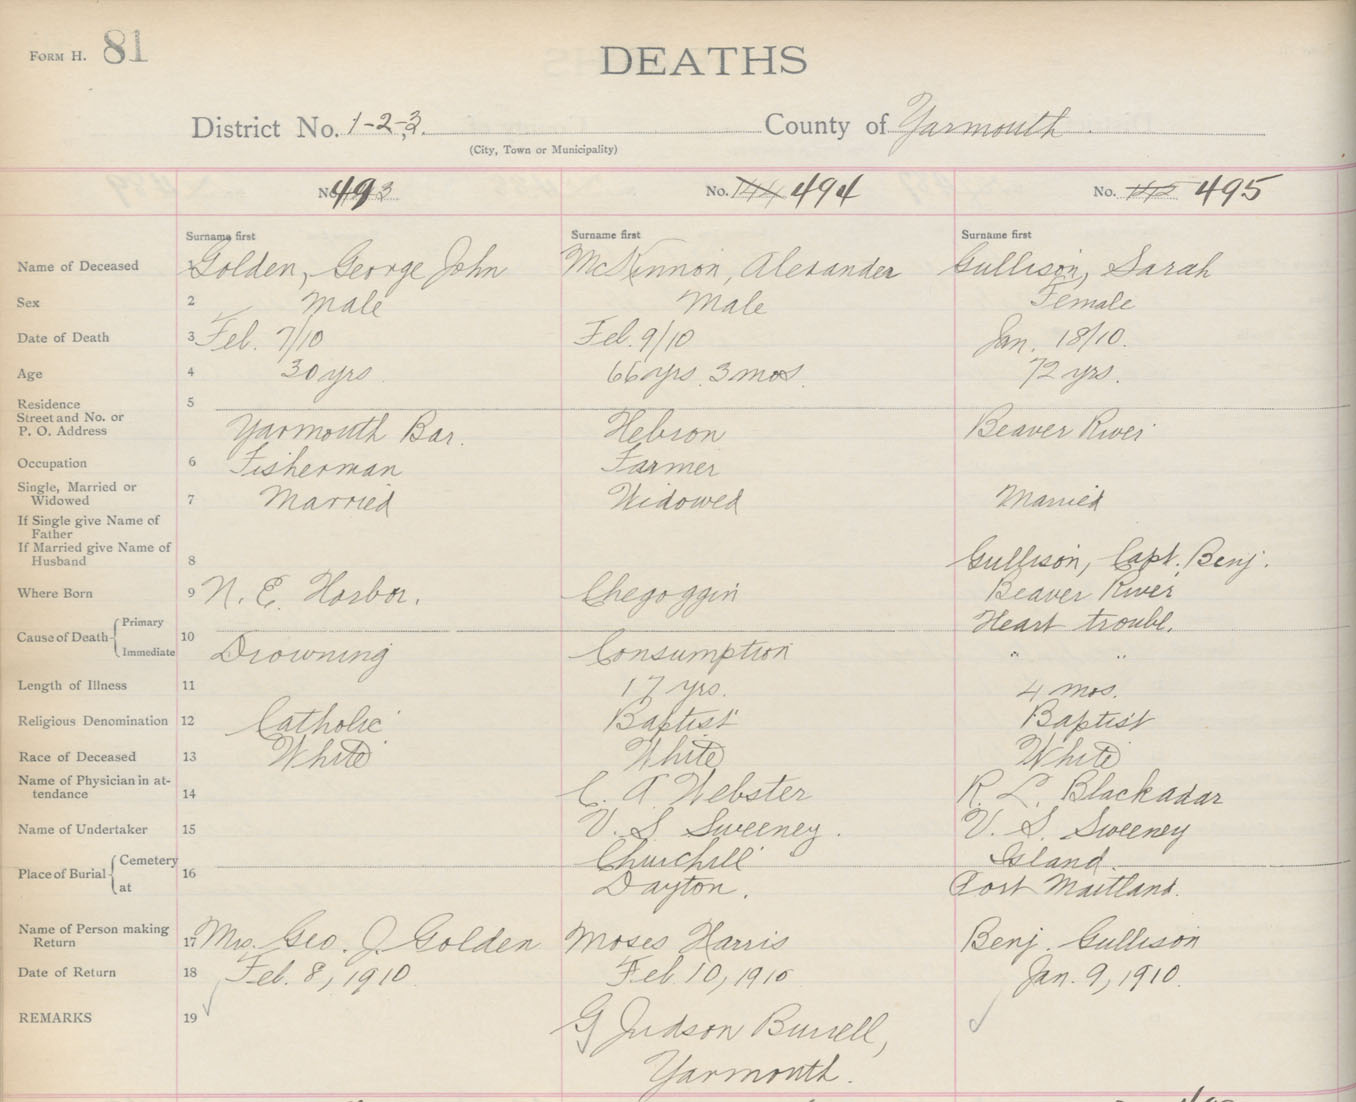 FORM H. 81
DEATHS
District No. 1-2-3. County of Yarmouth
(City, Town or Municipality)
No. 493 No. 144 494 No. 495
Surname first Surname first Surname first
Name of Deceased 1 Golden, George John McKinnon, Alexander Gullison, Sarah
Sex 2 Male Male Female
Date of Death 3 Feb. 7/10 Feb. 9/10 Jan. 18/10.
Age 4 30 yrs 66 yrs. 3 mos. 72 yrs.
Residence 5
Street and No. or
P. O. Address Yarmouth Bar. Hebron Beaver River
Occupation 6 Fisherman Farmer
Single, Married or
Widowed 7 Married Widowed Married
If Single give Name of
Father
If Married give Name of
Husband 8 Gullison, Capt. Benj.
Where Born 9 N. E. Harbor. Chegoggin Beaver River
Cause of Death Primary Heart trouble.
10
Immediate Drowning Consumption " "
Length of Illness 11 17 yrs. 4 mos.
Religious Denomination 12 Catholic Baptist Baptist
Race of Deceased 13 White White White
Name of Physician in at-
tendance 14 C. A. Webster R. L. Blackadar
Name of Undertaker 15 V. S. Sweeney. V. S. Sweeney
Place of Burial Cemetery Churchill Island.
16
at Dayton. Port Maitland.
Name of Person making
Return 17 Mrs. Geo. J. Golden Moses Harris Benj. Gullison
Date of Return 18 Feb. 8, 1910 Feb. 10, 1910 Jan. 9, 1910.
REMARKS 19 G Judson Burrell,
Yarmouth.